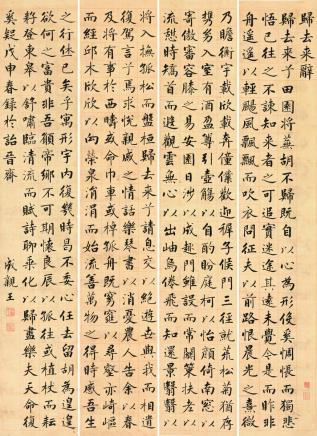 歸去來辭
歸去來兮田園將蕪胡不歸既自以心為形役奚惆悵而獨悲
悟已往之不諫知來者之可追實迷途其未遠覺今是而昨非
舟遥遥以輕颺風飄飄而吹衣問征夫以前路恨晨光之熹微
乃瞻衡宇載欣載奔僮僕歡迎稚子候門三徑就荒松菊猶存
攜幼入室有酒盈尊引壺觴以自酌眄庭柯以怡顏倚南窗以
寄傲審容膝之易安園日涉以成趣門雖設而常關策扶老以
流憩時矯首而遐觀雲無心以出岫鳥倦飛而知還景翳翳以
將入撫孤松而盤桓歸去來兮請息交以絕遊世與我而相遺
復駕言兮焉求悅親戚之情話樂琴書以消憂農人告余以春
及將有事於西疇或命巾車或棹孤舟既窈窕以尋壑亦崎嶇
而經邱木欣欣以向榮泉涓涓而始流善萬物之得時感吾生
之行休已矣乎寓形宇內復幾時曷不委心任去留胡為遑遑
欲何之富貴非吾願帝鄉不可期懷良辰以孤往或植杖而耘
耔登東皋以舒嘯臨清流而賦詩聊乘化以歸盡樂夫天命復
奚疑戊申春錄於詒晉齋
成親王